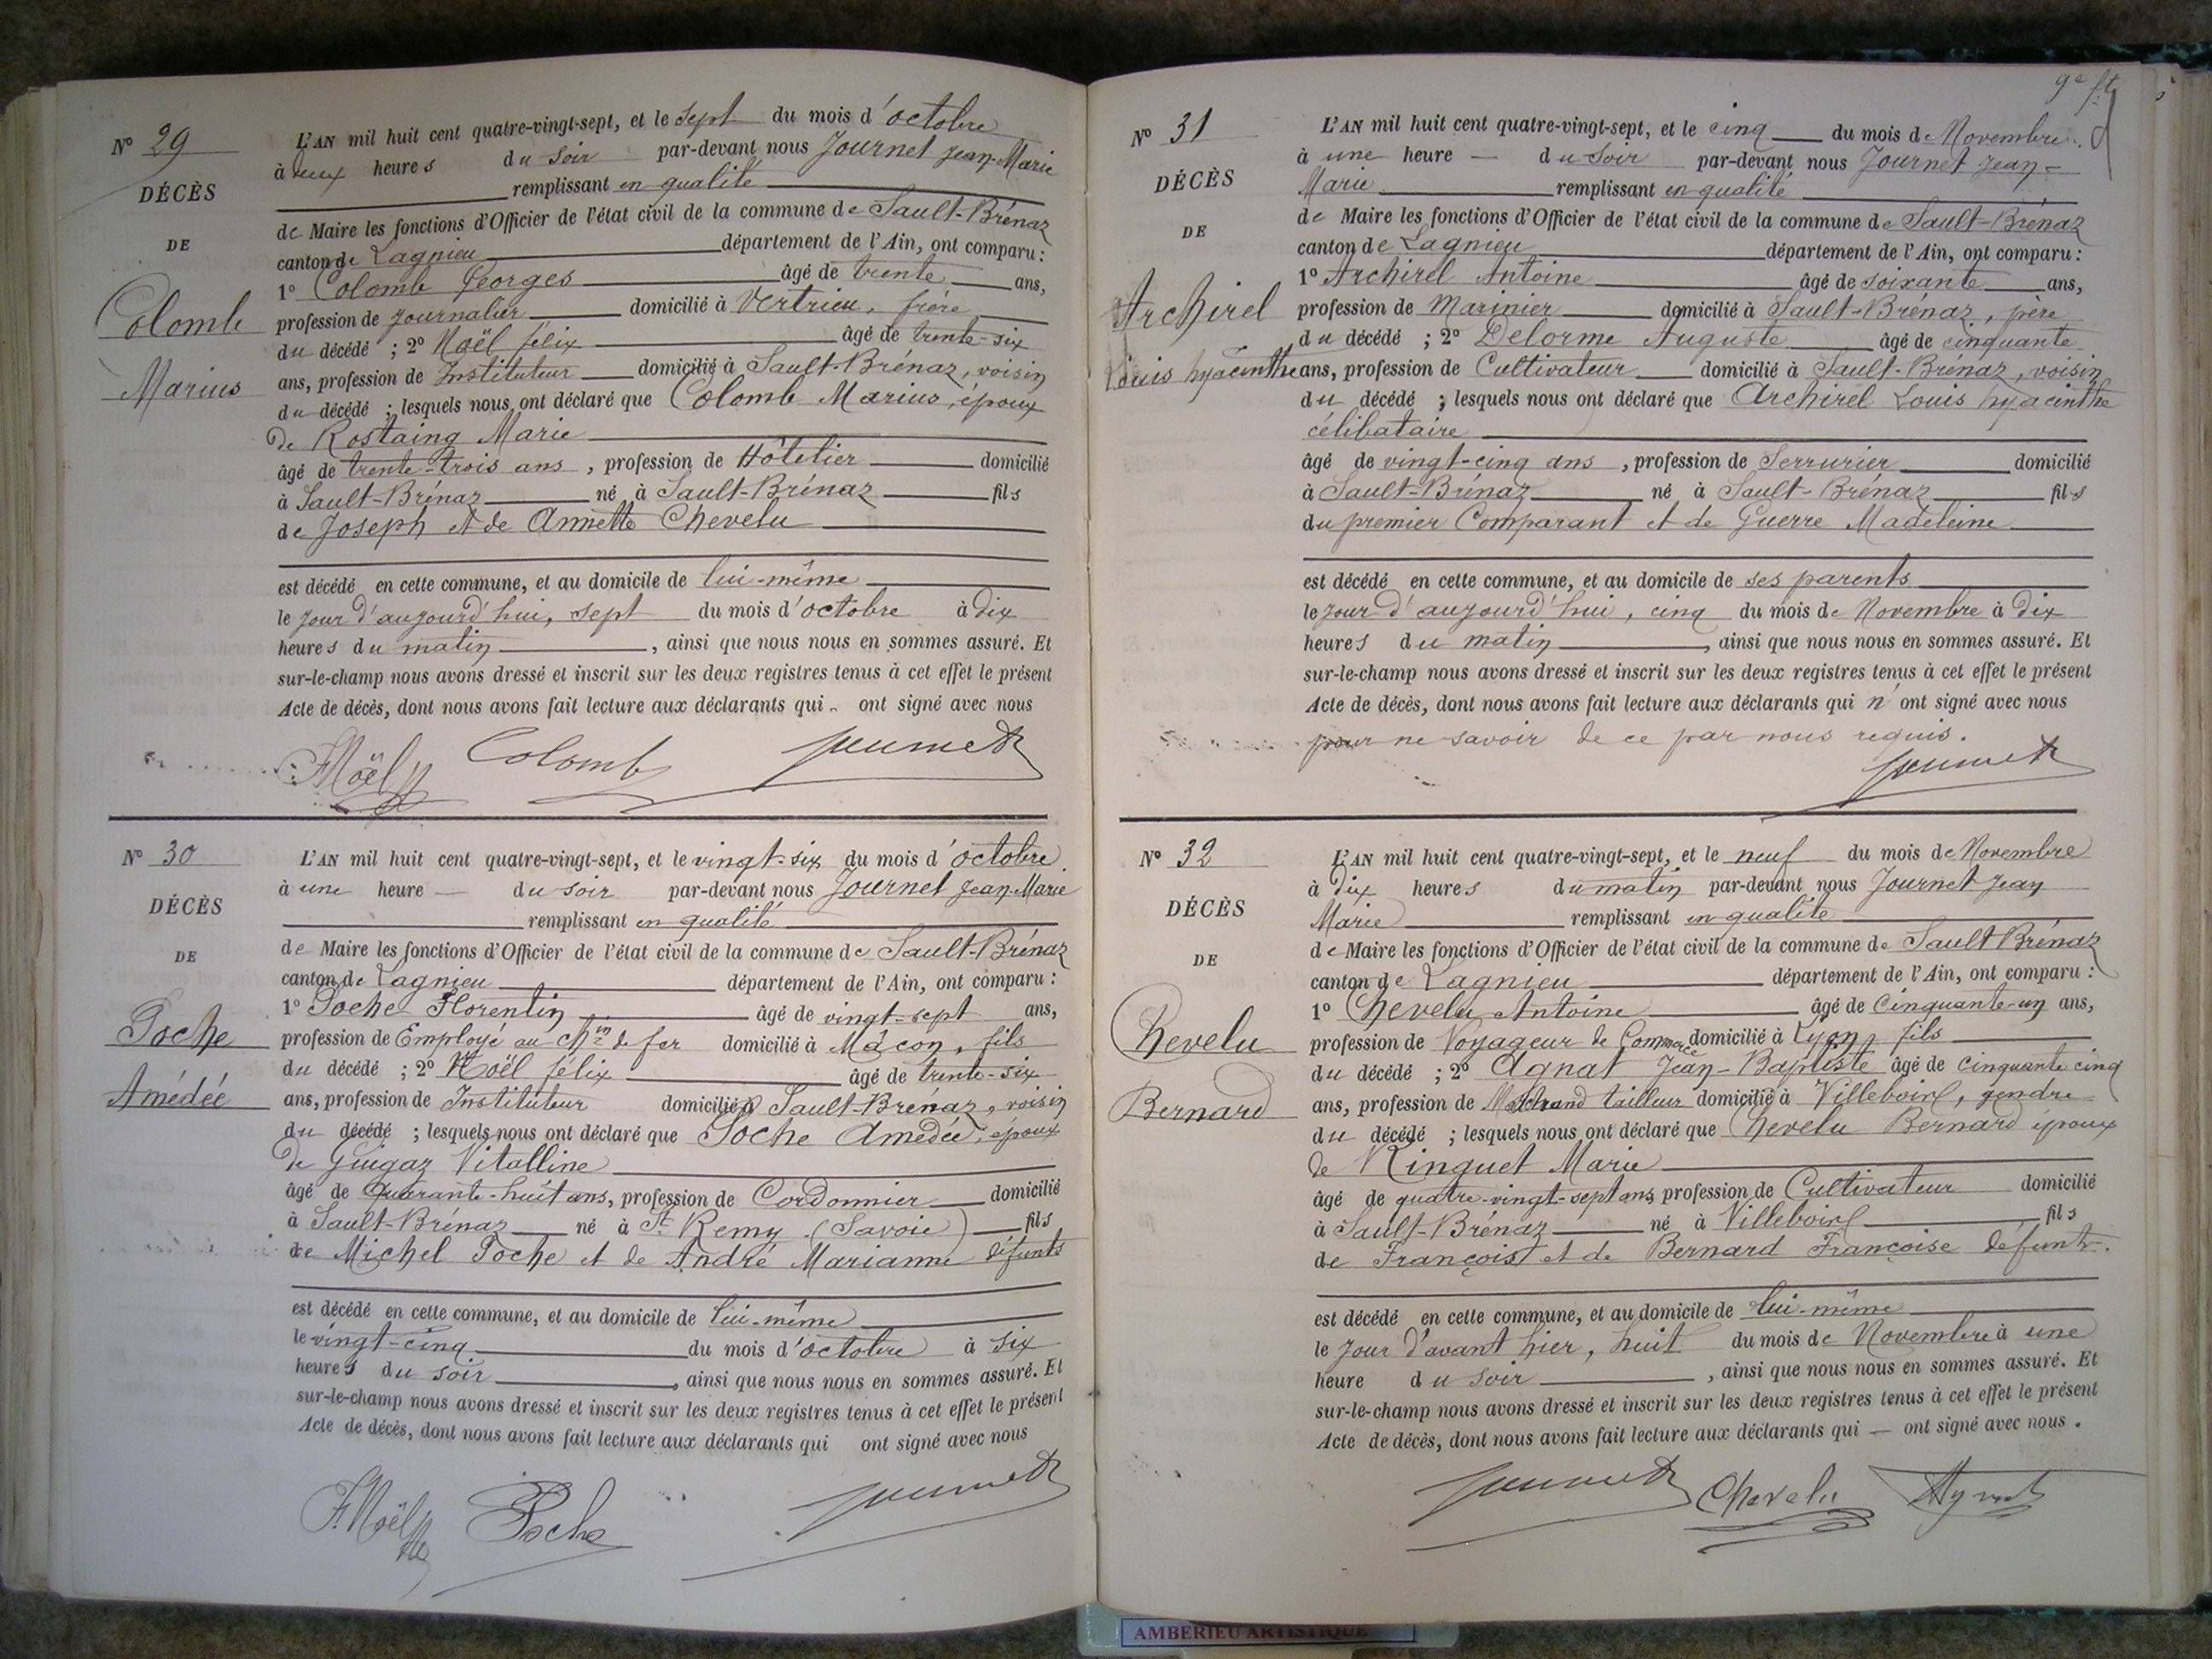 N° 29
DÉCÈS
DE
Colomb
Marius
L'AN mil huit cent quatre-vingt-sept, et le sept du mois d'octobre
à deux heures du soir par-devant nous Journet Jean-Marie
remplissant en qualité
de Maire les fonctions d'Officier de l'état civil de la commune de Sault-Brénaz
canton de Lagnieu département de l'Ain, ont comparu :
1° Colomb Georges âgé de trente ans,
profession de journalier domicilié à Vertrieu, frère
du décédé ; 2° Noël félix âgé de trente-six
ans, profession de Instituteur domicilié à Sault-Brénaz, voisin
du décédé ; lesquels nous ont déclaré que Colomb Marius, époux
de Rostaing Marie
âgé de trente-trois ans, profession de Hôtelier domicilié
à Sault-Brénaz né à Sault-Brénaz fils
de Joseph et de Annette Chevelu
est décédé en cette commune, et au domicile de lui-même
le jour d'aujourd'hui, sept du mois d'octobre à dix
heures du matin, ainsi que nous nous en sommes assuré. Et
sur-le-champ nous avons dressé et inscrit sur les deux registres tenus à cet effet le présent
Acte de décès, dont nous avons fait lecture aux déclarants qui ont signé avec nous
F Noël Colomb Journet
N° 30
DÉCÈS
DE
Poche
Amédée
L'AN mil huit cent quatre-vingt-sept, et le vingt-six du mois d'octobre
à une heure du soir par-devant nous Journet Jean-Marie
remplissant en qualité
de Maire les fonctions d'Officier de l'état civil de la commune de Sault-Brénaz
canton de Lagnieu département de l'Ain, ont comparu :
1° Poche Florentin âgé de vingt-sept ans,
profession de Employé au chin de fer domicilié à Mâcon, fils
du décédé ; 2° Noël félix âgé de trente-six
ans, profession de Instituteur domicilié à Sault-Brénaz, voisin
du décédé ; lesquels nous ont déclaré que Poche Amédée, époux
de Guigaz Vitalline
âgé de Quarante-huit ans, profession de Cordonnier domicilié
à Sault-Brénaz né à St Remy (Savoie) fils
de Michel Poche et de André Marianne défunts
est décédé en cette commune, et au domicile de lui-même
le vingt-cinq du mois d'octobre à six
heures du soir, ainsi que nous nous en sommes assuré. Et
sur-le-champ nous avons dressé et inscrit sur les deux registres tenus à cet effet le présent
Acte de décès, dont nous avons fait lecture aux déclarants qui ont signé avec nous
F. Noël Poche Journet
9e ft
N° 31
DÉCÈS
DE
Archirel
Louis hyacinthe
L'AN mil huit cent quatre-vingt-sept, et le cinq du mois de Novembre
à une heure du soir par-devant nous Journet Jean-
Marie remplissant en qualité
de Maire les fonctions d'Officier de l'état civil de la commune de Sault-Brénaz
canton de Lagnieu département de l'Ain, ont comparu :
1° Archirel Antoine âgé de soixante ans,
profession de Marinier domicilié à Sault-Brénaz, père
du décédé ; 2° Delorme Auguste âgé de cinquante
ans, profession de Cultivateur domicilié à Sault-Brénaz, voisin
du décédé ; lesquels nous ont déclaré que Archirel Louis hyacinthe
célibataire
âgé de vingt-cinq ans, profession de Serrurier domicilié
à Sault-Brénaz né à Sault-Brénaz fils
du premier Comparant et de Guerre Madeleine
est décédé en cette commune, et au domicile de ses parents
le jour d'aujourd'hui, cinq du mois de Novembre à dix
heures du matin, ainsi que nous nous en sommes assuré. Et
sur-le-champ nous avons dressé et inscrit sur les deux registres tenus à cet effet le présent
Acte de décès, dont nous avons fait lecture aux déclarants qui n'ont signé avec nous
pour ne savoir de ce par nous requis.
Journet
N° 32
DÉCÈS
DE
Chevelu
Bernard
L'AN mil huit cent quatre-vingt-sept, et le neuf du mois de Novembre
à dix heures du matin par-devant nous Journet Jean
Marie remplissant en qualité
de Maire les fonctions d'Officier de l'état civil de la commune de Sault Brénaz
canton de Lagnieu département de l'Ain, ont comparu :
1° Chevelu Antoine âgé de Cinquante-un ans,
profession de Voyageur de Commerce domicilié à Lyon, fils
du décédé ; 2° Agnat Jean-Baptiste âgé de cinquante cinq
ans, profession de Marchand tailleur domicilié à Villebois, gendre
du décédé ; lesquels nous ont déclaré que Chevelu Bernard époux
de Ringuet Marie
âgé de quatre-vingt-sept ans, profession de Cultivateur domicilié
à Sault-Brénaz né à Villebois fils
de François et de Bernard Françoise défunts.
est décédé en cette commune, et au domicile de lui-même
le jour d'avant hier, huit du mois de Novembre à une
heure du soir, ainsi que nous nous en sommes assuré. Et
sur-le-champ nous avons dressé et inscrit sur les deux registres tenus à cet effet le présent
Acte de décès, dont nous avons fait lecture aux déclarants qui — ont signé avec nous.
Journet Chevelu
AMBERIEU ARTISTIQUE